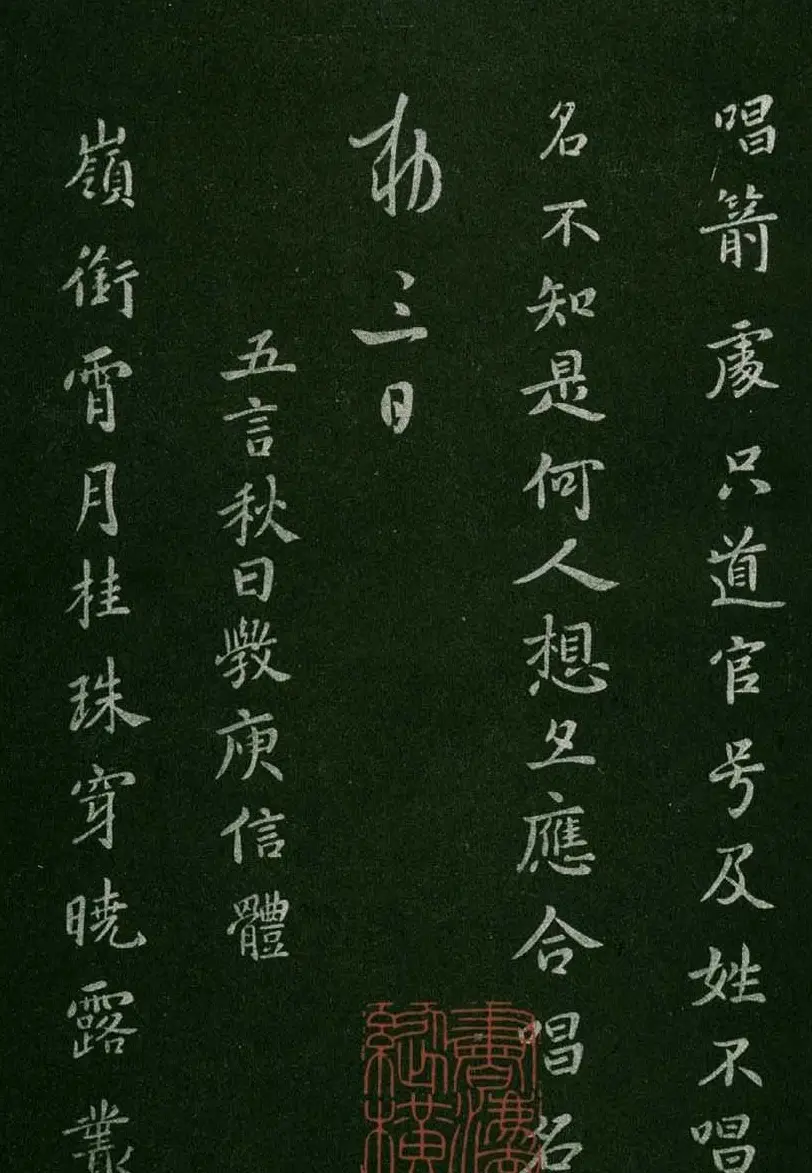 唱箭處只道官号及姓不唱
名不知是何人想亦應合唱名
勅 三日
五言秋日斆庾信體
嶺銜霄月桂珠穿曉露叢
書法
縱橫